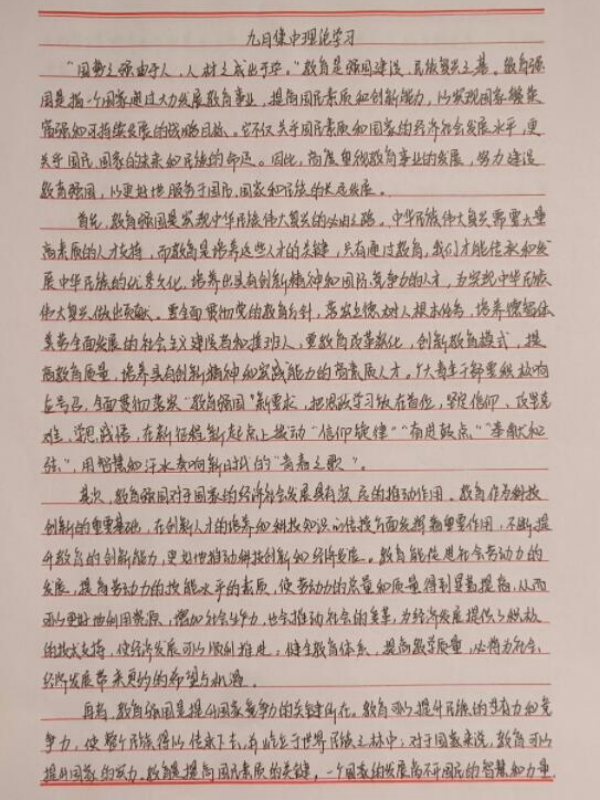 九月集中理论学习
“国势之强由于人，人材之成出于学。”教育是强国建设、民族复兴之基。教育强
国是指一个国家通过大力发展教育事业，提高国民素质和创新能力，以实现国家繁荣
富强和可持续发展的战略目标。它不仅关乎国民素质和国家的经济社会发展水平，更
关乎国民、国家的未来和民族的命运。因此，高度重视教育事业的发展，努力建设
教育强国，以更好地服务于国民、国家和民族的长远发展。
首先，教育强国是实现中华民族伟大复兴的必由之路。中华民族伟大复兴需要大量
高素质的人才支持，而教育是培养这些人才的关键，只有通过教育，我们才能传承和发
展中华民族的优秀文化，培养出具有创新精神和国际竞争力的人才，为实现中华民族
伟大复兴做出贡献。要全面贯彻党的教育方针，落实立德树人根本任务，培养德智体
美劳全面发展的社会主义建设者和接班人，要教育改革教化，创新教育模式，提
高教育质量，培养具有创新精神和实践能力的高素质人才。广大青年干部要积极响
应号召，全面贯彻落实“教育强国”新要求，把思政学习放在首位，坚定信仰、攻坚克
难、学思践悟，在新征程新起点上拨动“信仰旋律”“奋进鼓点”“奉献和
弦”，用智慧和汗水奏响新时代的“青春之歌”。
其次，教育强国对于国家的经济社会发展具有深远的推动作用。教育作为科技
创新的重要基础，在创新人才的培养和科技知识的传播方面发挥着重要作用，不断提
升教育的创新能力，更好地推动科技创新和经济发展。教育能促进社会劳动力的
发展，提高劳动力的技能水平的素质，使劳动力的总量和质量得到显著提高，从而
可以更好地利用资源，增加社会生产力，也会推动社会的变革，为经济发展提供了积极
的技术支持，使经济发展可以顺利推进；健全教育体系，提高教学质量，必将为社会、
经济发展带来更多的希望与机遇。
再者，教育强国是提升国家竞争力的关键所在。教育可以提升民族的生存力和竞
争力，使整个民族得以传承下去，并屹立于世界民族之林中；对于国家来说，教育可以
提升国家的实力。教育是提高国民素质的关键，一个国家的发展离不开国民的智慧和力量，